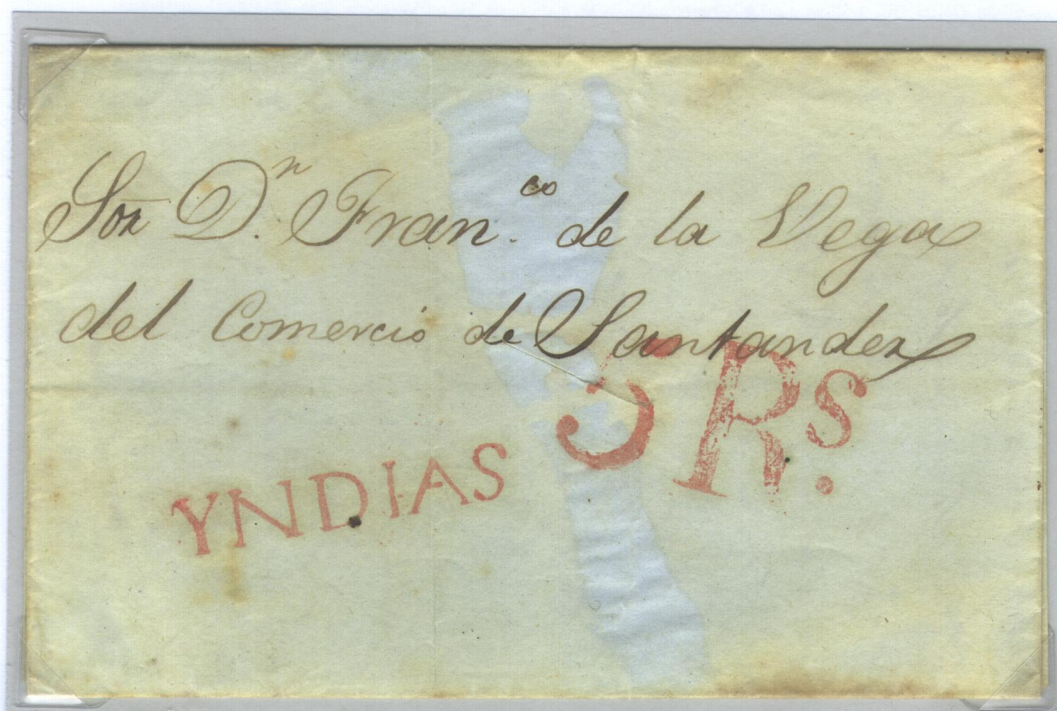 Sor Dn. Franco. de la Vega
del Comercio de Santander
5 Rs.
YNDIAS